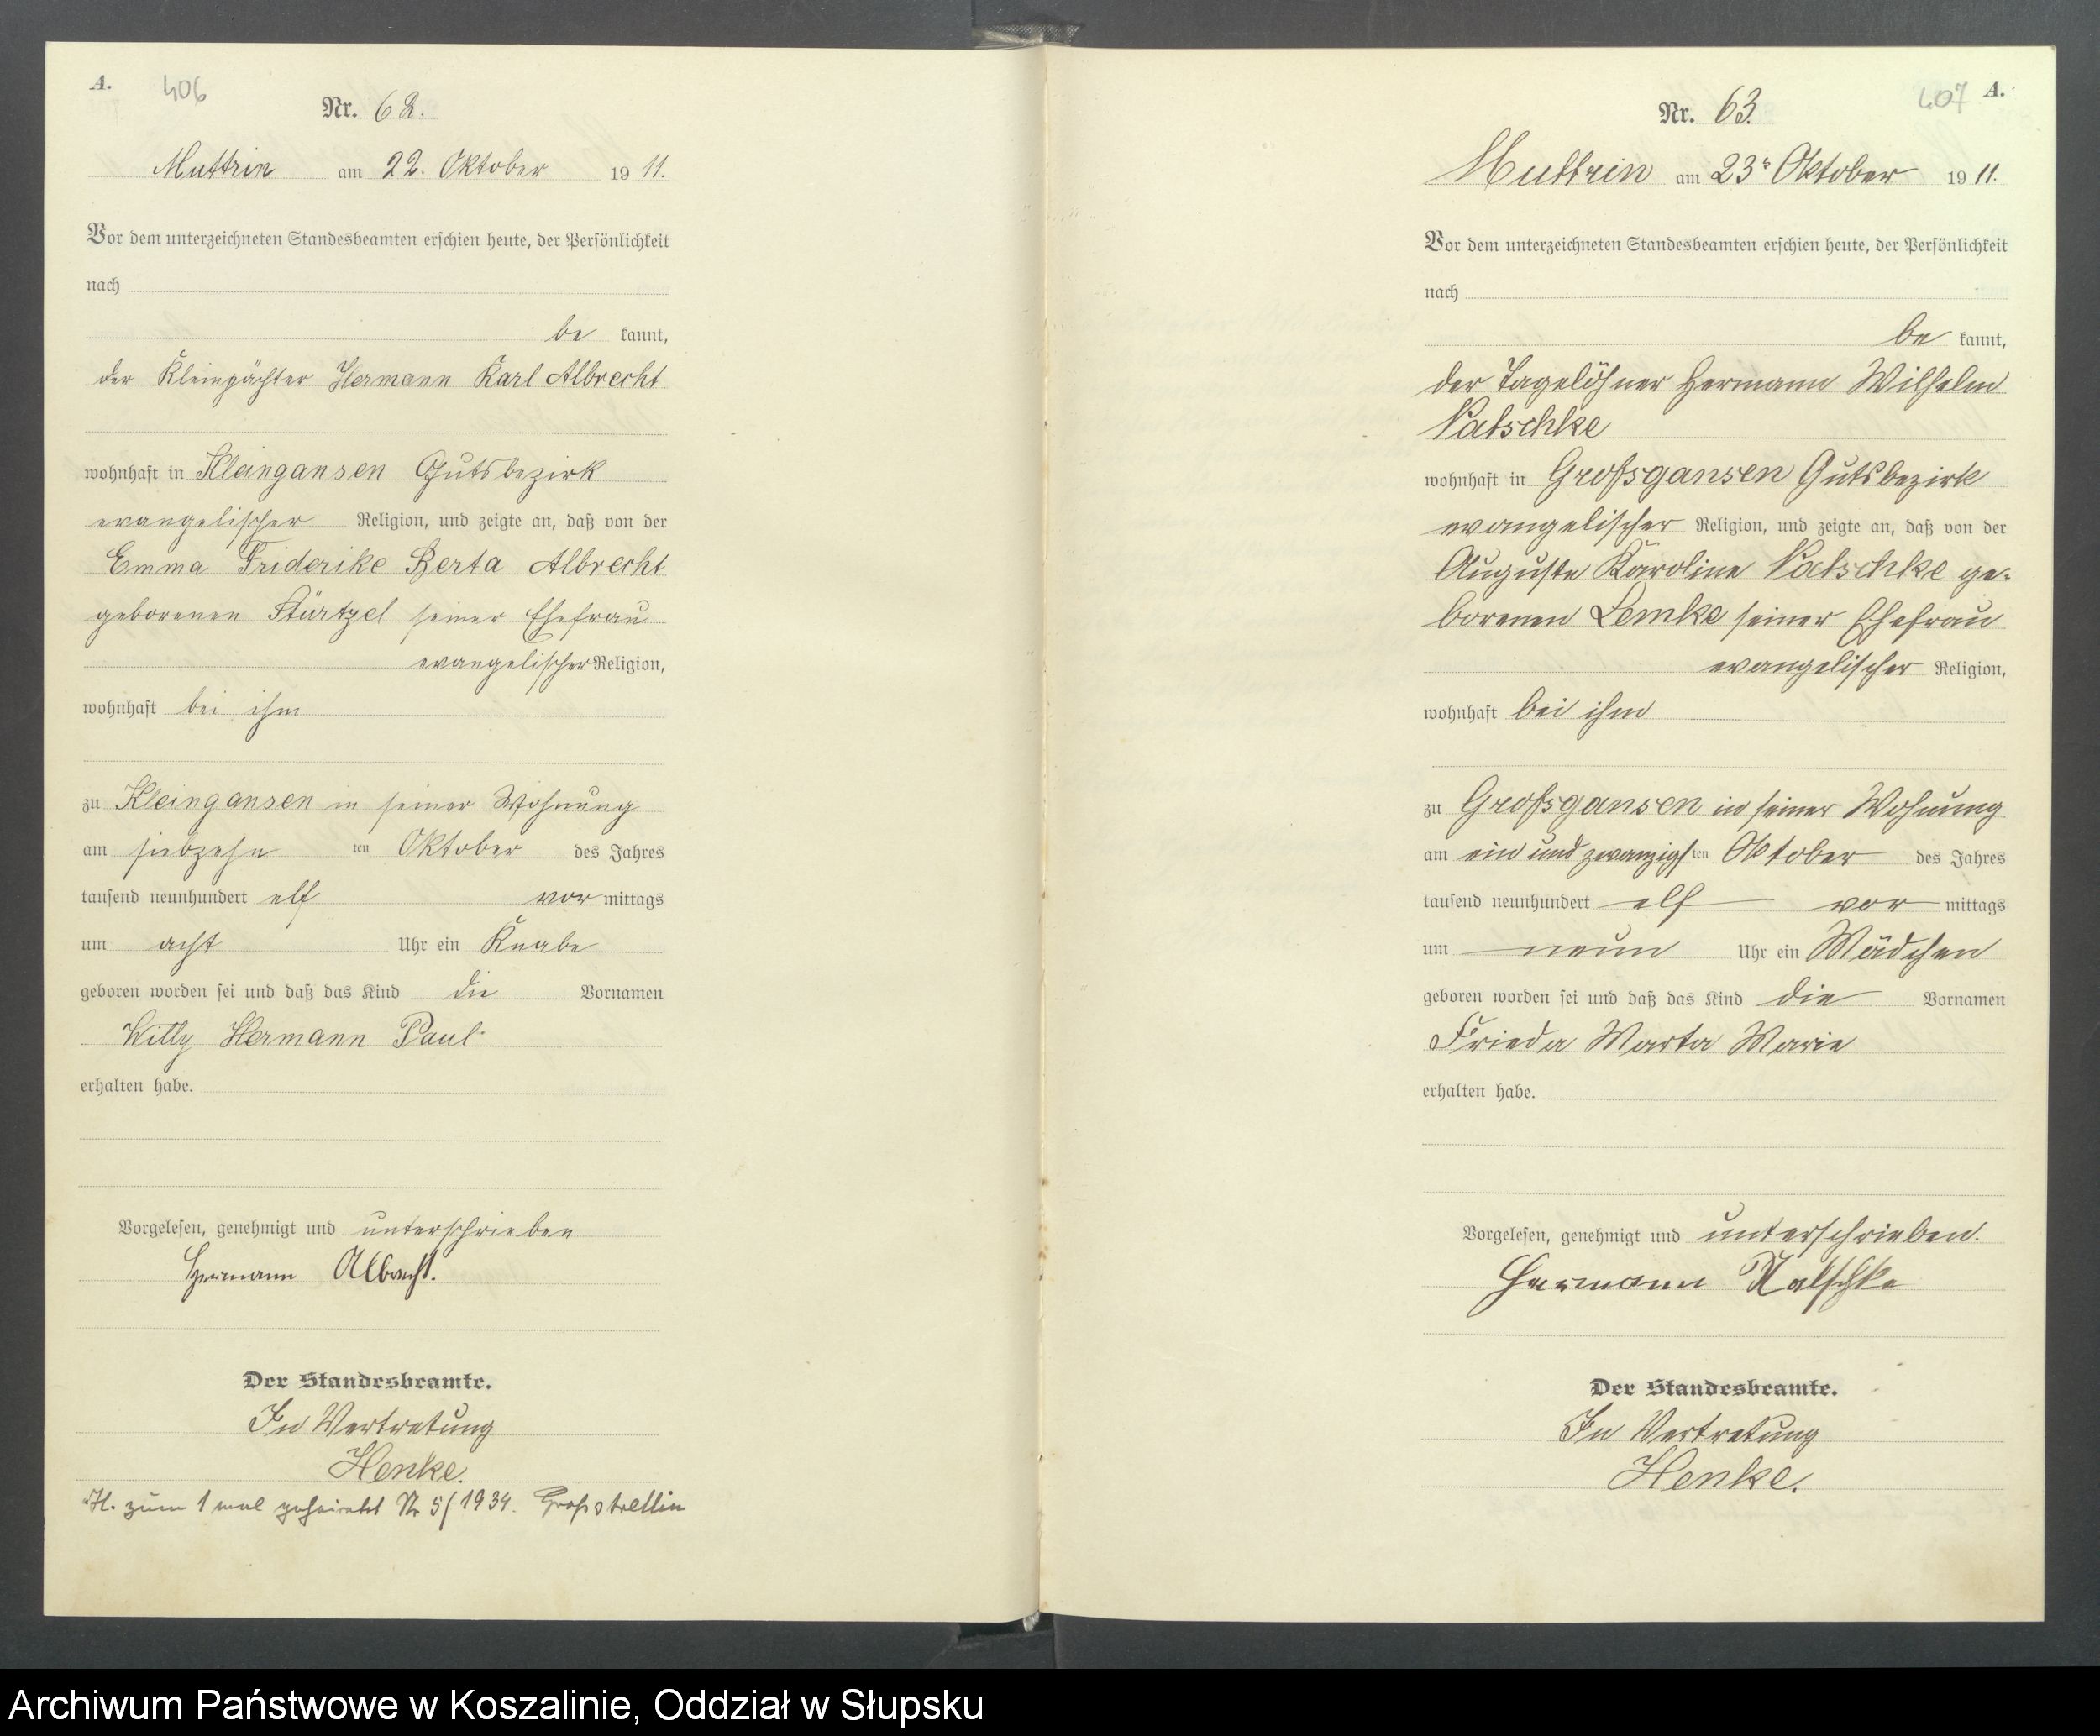 A.
406
Nr. 62.
Muttrin am 22. Oktober 1911.
Vor dem unterzeichneten Standesbeamten erschien heute, der Persönlichkeit
nach
be kannt,
der Kleinpächter Hermann Karl Albrecht
wohnhaft in Kleingansen Gutsbezirk
evangelischer Religion, und zeigte an, daß von der
Emma Friderike Berta Albrecht
geborenen Stürtzel seiner Ehefrau
evangelischer Religion,
wohnhaft bei ihm
zu Kleingansen in seiner Wohnung
am siebzehn ten Oktober des Jahres
tausend neunhundert elf vor mittags
um acht Uhr ein Knabe
geboren worden sei und daß das Kind die Vornamen
Willy Hermann Paul
erhalten habe.
Vorgelesen, genehmigt und unterschrieben
Hermann Albrecht.
Der Standesbeamte.
In Vertretung
Henke.
H. zum 1 mal geheiratet Nr 5/1934. Großstrellin
407 A.
Nr. 63.
Muttrin am 23. Oktober 1911.
Vor dem unterzeichneten Standesbeamten erschien heute, der Persönlichkeit
nach
be kannt,
der Tagelöhner Hermann Wilhelm
Natschke
wohnhaft in Großgansen Gutsbezirk
evangelischer Religion, und zeigte an, daß von der
Auguste Karoline Natschke ge-
borenen Lemke seiner Ehefrau
evangelischer Religion,
wohnhaft bei ihm
zu Großgansen in seiner Wohnung
am ein und zwanzigsten Oktober des Jahres
tausend neunhundert elf vor mittags
um neun Uhr ein Mädchen
geboren worden sei und daß das Kind die Vornamen
Frieda Marta Marie
erhalten habe.
Vorgelesen, genehmigt und unterschrieben.
Hermann Natschke
Der Standesbeamte.
In Vertretung
Henke.
Archiwum Państwowe w Koszalinie, Oddział w Słupsku